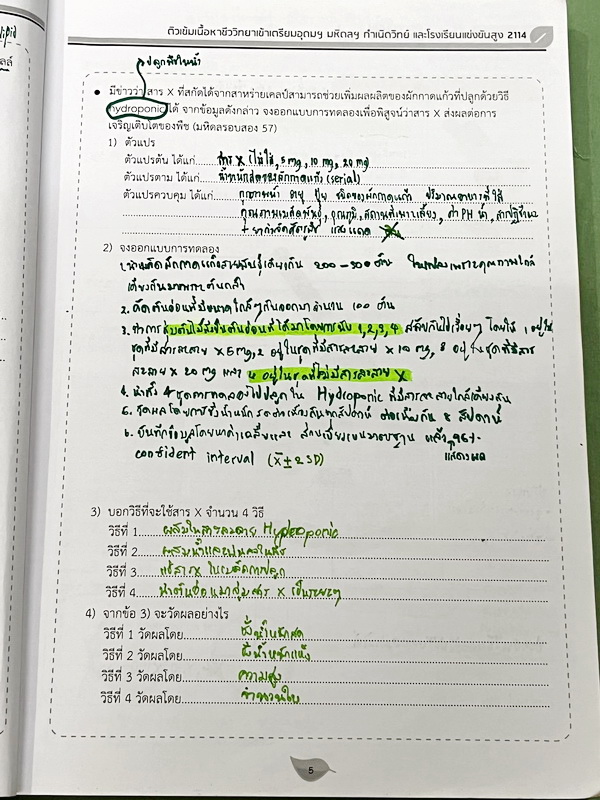 ติวเข้มเนื้อหาชีววิทยาเข้าเตรียมอุดมฯ มหิดลฯ กำเนิดวิทย์ และโรงเรียนแข่งขันสูง 2114
ปลูกพืชในน้ำ
• มีข่าวว่า สาร X ที่สกัดได้จากสาหร่ายเคลป์สามารถช่วยเพิ่มผลผลิตของผักกาดแก้วที่ปลูกด้วยวิธี
hydroponic ได้ จากข้อมูลดังกล่าว จงออกแบบการทดลองเพื่อพิสูจน์ว่าสาร X ส่งผลต่อการ
เจริญเติบโตของพืช (มหิดลรอบสอง 57)
1) ตัวแปร
ตัวแปรต้น ได้แก่ สาร X (ไม่ใช้, 5 mg, 10 mg, 20 mg)
ตัวแปรตาม ได้แก่ น้ำหนักสดของผักกาดแก้ว (serial)
ตัวแปรควบคุม ได้แก่ คุณภาพน้ำ อายุ ปุ๋ย ชนิดของผักกาดแก้ว ปริมาณอาหารที่ใส่
คุณภาพเมล็ดพันธุ์, อุณหภูมิ, สถานที่เพาะเลี้ยง, ค่า PH น้ำ,
+ ยากำจัดศัตรูพืช แสงแดด
2) จงออกแบบการทดลอง
200 - 300 ต้น
2. คัดต้นอ่อนที่มีขนาดใกล้ๆกันออกมาจำนวน 100 ต้น
3. ทำการสุ่มต้นไม้ซึ่งเป็นต้นอ่อนที่ได้มาโดยการนับ 1, 2, 3, 4 สลับกันไปเรื่อยๆ โดยให้ 1 อยู่ใน
ชุดที่มีสารละลาย X 5 mg, 2 อยู่ในชุดที่มีสารละลาย X 10 mg, 3 อยู่ในชุดที่มีสาร
ละลาย X 20 mg และ 4 อยู่ในชุดที่ไม่มีสารละลาย X
4. นำทั้ง 4 ชุดการทดลองไปปลูกใน Hydroponic ที่มีสารละลายใกล้เคียงกัน
5. วัดผลโดยการชั่งน้ำหนักสดต่อเนื่องกันทุกสัปดาห์ ต่อเนื่องกัน 8 สัปดาห์
6. บันทึกข้อมูลโดยหาค่าเฉลี่ยและ ส่วนเบี่ยงเบนมาตรฐาน แล้ว 96%
confident interval (x̄ ± 2SD) แสดงผล
3) บอกวิธีที่จะใช้สาร X จำนวน 4 วิธี
วิธีที่ 1 ผสมในสารละลาย Hydroponic
วิธีที่ 2 ผสมน้ำและพ่นลงในพืช
วิธีที่ 3 แช่สาร X ในเมล็ดการปลูก
วิธีที่ 4 นำต้นอ่อนมาจุ่มสาร X เป็นระยะๆ
4) จากข้อ 3) จะวัดผลอย่างไร
วิธีที่ 1 วัดผลโดย ชั่งน้ำหนักสด
วิธีที่ 2 วัดผลโดย ชั่งน้ำหนักแห้ง
วิธีที่ 3 วัดผลโดย ความสูง
วิธีที่ 4 วัดผลโดย จำนวนใบ
5